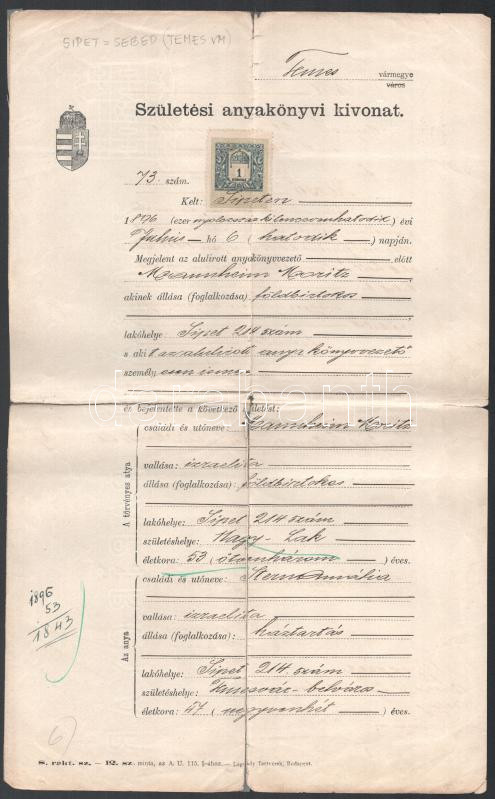 SIPET = SEBED (TEMES VM)
Temes vármegye
város
Születési anyakönyvi kivonat.
1
73 szám.
Kelt: Sipeten
1896 (ezernyolcszázkilencvenhatodik) évi
Julius hó 6 (hatodik) napján.
Megjelent az alulirott anyakönyvezető előtt
Mannheim Moritz
akinek állása (foglalkozása) földbirtokos
lakóhelye: Sipet 214 szám
s akit az alulirott anyakönyvezető
személyesen ismer
és bejelentette a következő születést:
A törvényes atya
családi és utóneve: Mannheim Moritz
vallása: izraelita
állása (foglalkozása): földbirtokos
lakóhelye: Sipet 214 szám
születéshelye: Nagy-Lak
életkora: 53 (ötvenhárom) éves.
Az anya
családi és utóneve: Stern Amália
vallása: izraelita
állása (foglalkozása): háztartás
lakóhelye: Sipet 214 szám
születéshelye: Temesvár-belváros
életkora: 47 (negyvenhét) éves.
1896
53
1843
6)
8. rakt. sz. — 12. sz. minta, az A. U. 115. §-ához. — Légrády Testvérek, Budapest.